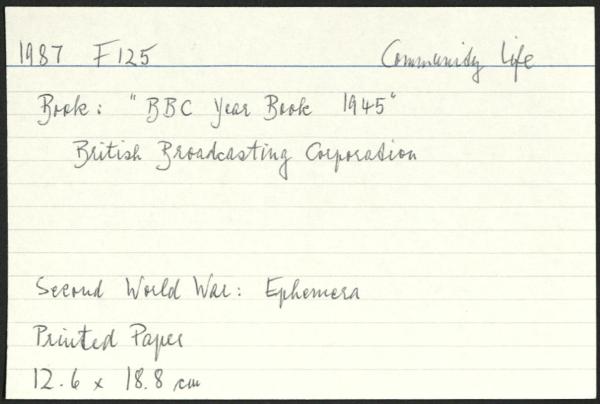 1987 F125 Community Life
Book: "BBC Year Book 1945"
British Broadcasting Corporation
Second World War: Ephemera
Printed Paper
12.6 x 18.8 cm